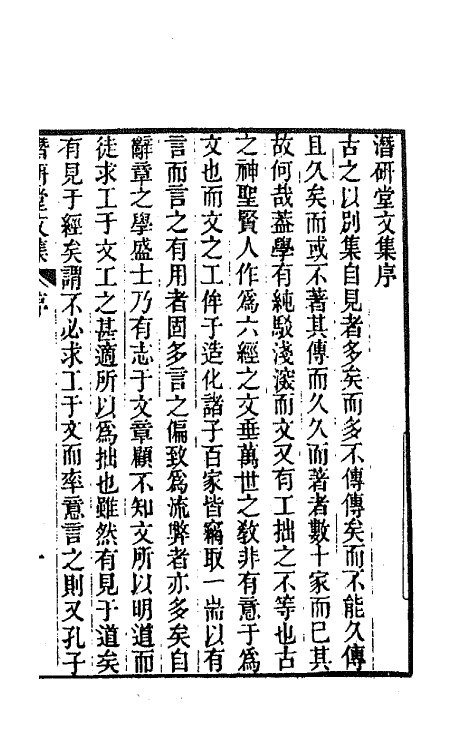 潛研堂文集序
古之以別集自見者多矣而多不傳傳矣而不能久傳
且久矣而或不著其傳而久久而著者數十家而已其
故何哉蓋學有純駁淺深而文又有工拙之不等也古
之神聖賢人作爲六經之文垂萬世之敎非有意于爲
文也而文之工侔于造化諸子百家皆竊取一耑以有
言而言之有用者固多言之偏致爲流弊者亦多矣自
辭章之學盛士乃有志于文章顧不知文所以明道而
徒求工于文工之甚適所以爲拙也雖然有見于道矣
有見于經矣謂不必求工于文而率意言之則又孔子
潛研堂文集 序 一